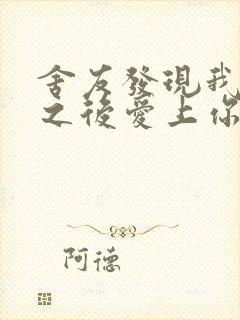 舍友發現我
之後愛上你
阿德